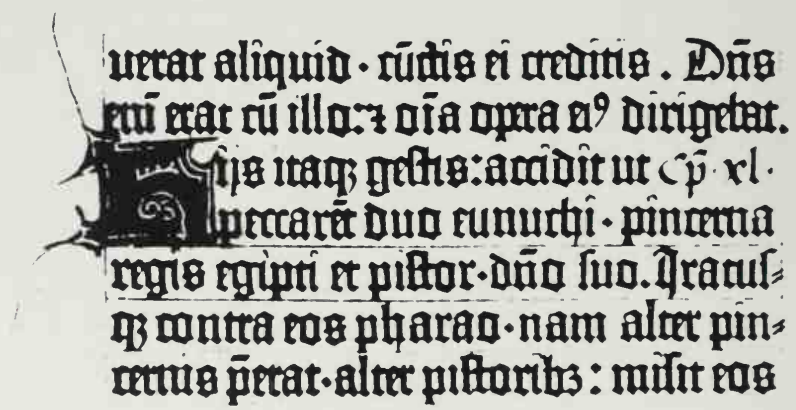 uerat aliquid · cũctis ei creditis . Dñs
enĩ erat cũ illo:⁊ oĩa opera ei⁹ dirigebat.
Hijs itaqꝫ gestis: accidit ut Cp̃ · xl ·
peccarẽt duo eunuchi · pincerna
regis egipti et pistor · dño suo. Iratus⸗
qꝫ contra eos pharao · nam alter pin⸗
cernis p̃erat · alter pistoribꝫ : misit eos